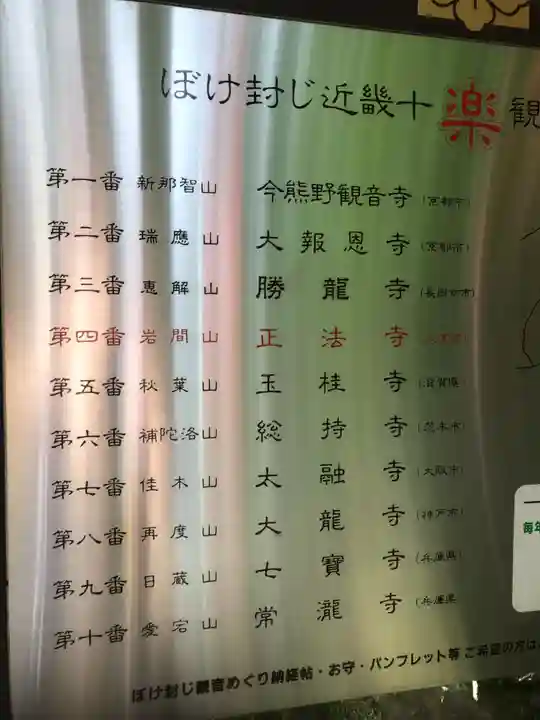 ぼけ封じ近畿十楽観
第一番 新那智山 今熊野観音寺 (京都市)
第二番 瑞應山 大報恩寺 (京都市)
第三番 恵解山 勝龍寺 (長岡京市)
第四番 岩間山 正法寺 (大津市)
第五番 秋葉山 玉桂寺 (滋賀県)
第六番 補陀洛山 総持寺 (茨木市)
第七番 佳木山 太融寺 (大阪市)
第八番 再度山 大龍寺 (神戸市)
第九番 日蔵山 七寶寺 (兵庫県)
第十番 愛宕山 常瀧寺 (兵庫県
ぼけ封じ観音めぐり納経帖・お守・パンフレット等 ご希望の方は
毎年